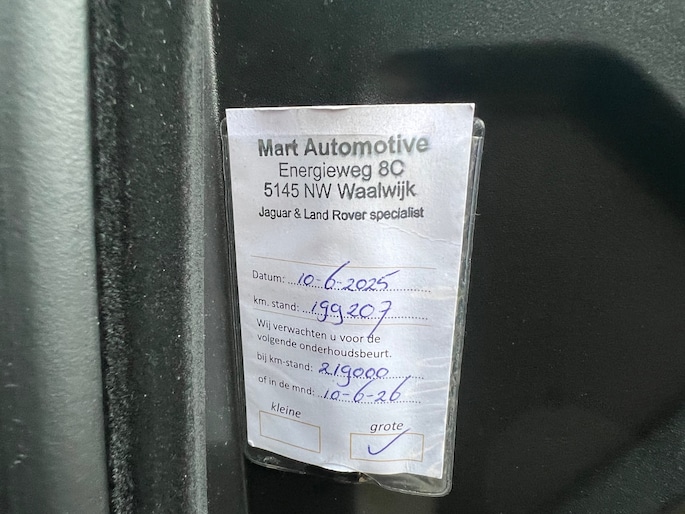 Mart Automotive
Energieweg 8C
5145 NW Waalwijk
Jaguar & Land Rover specialist
Datum: 10-6-2025
km. stand: 199207
Wij verwachten u voor de
volgende onderhoudsbeurt.
bij km-stand: 219000
of in de mnd: 10-6-26
kleine grote